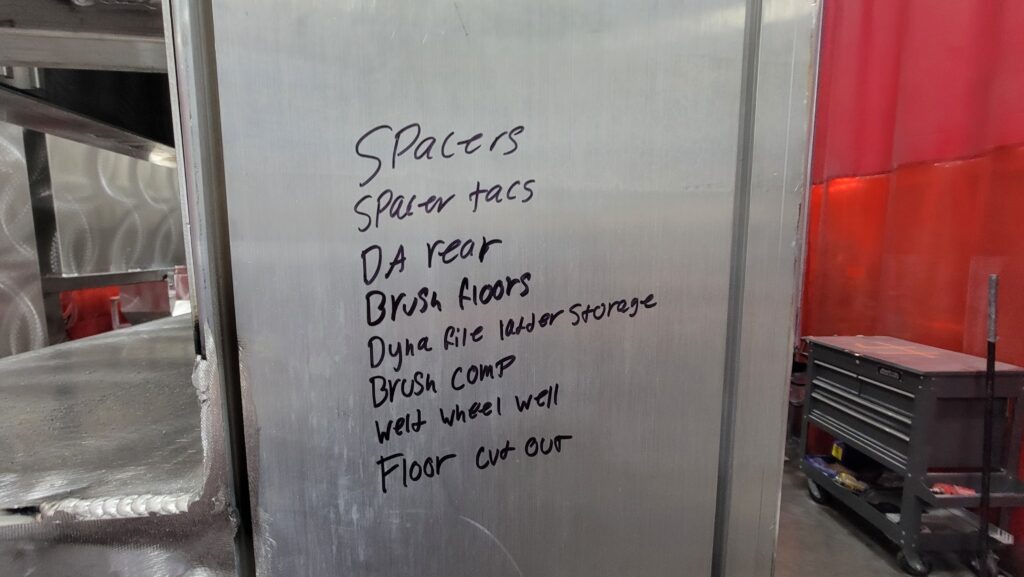 Spacers
Spacer tacs
DA rear
Brush floors
Dyna file ladder storage
Brush comp
Weld wheel well
Floor cut out